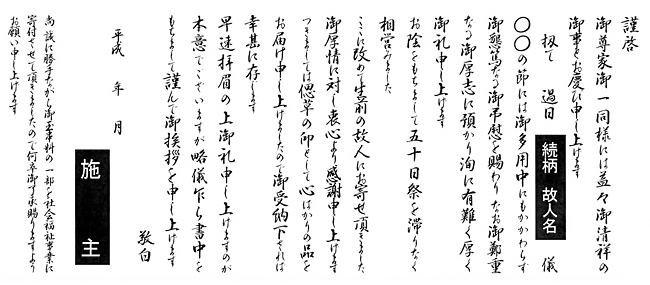 謹啓
御尊家御一同様には益々御清祥の
御事とお慶び申し上げます
扨て 過日 続柄 故人名 儀
〇〇の節には御多用中にもかかわらず
御懇篤なる御弔慰を賜わり なお御鄭重
なる御厚志に預かり洵に有難く厚く
御礼申し上げます
お陰をもちまして五十日祭を滞りなく
相営みました
ここに改めて生前の故人にお寄せ頂きました
御厚情に対し衷心より感謝申し上げます
つきましては偲草の印として心ばかりの品を
お届け申し上げましたので御受納下されば
幸甚に存じます
早速拝眉の上御礼申し上げますのが
本意でございますが略儀乍ら書中を
もちまして謹んで御挨拶を申し上げます
敬白
平成 年 月
施主
尚 誠に勝手ながら御玉串料の一部を社会福祉事業に
寄付させて頂きましたので何卒御了承賜りますよう
お願い申し上げます